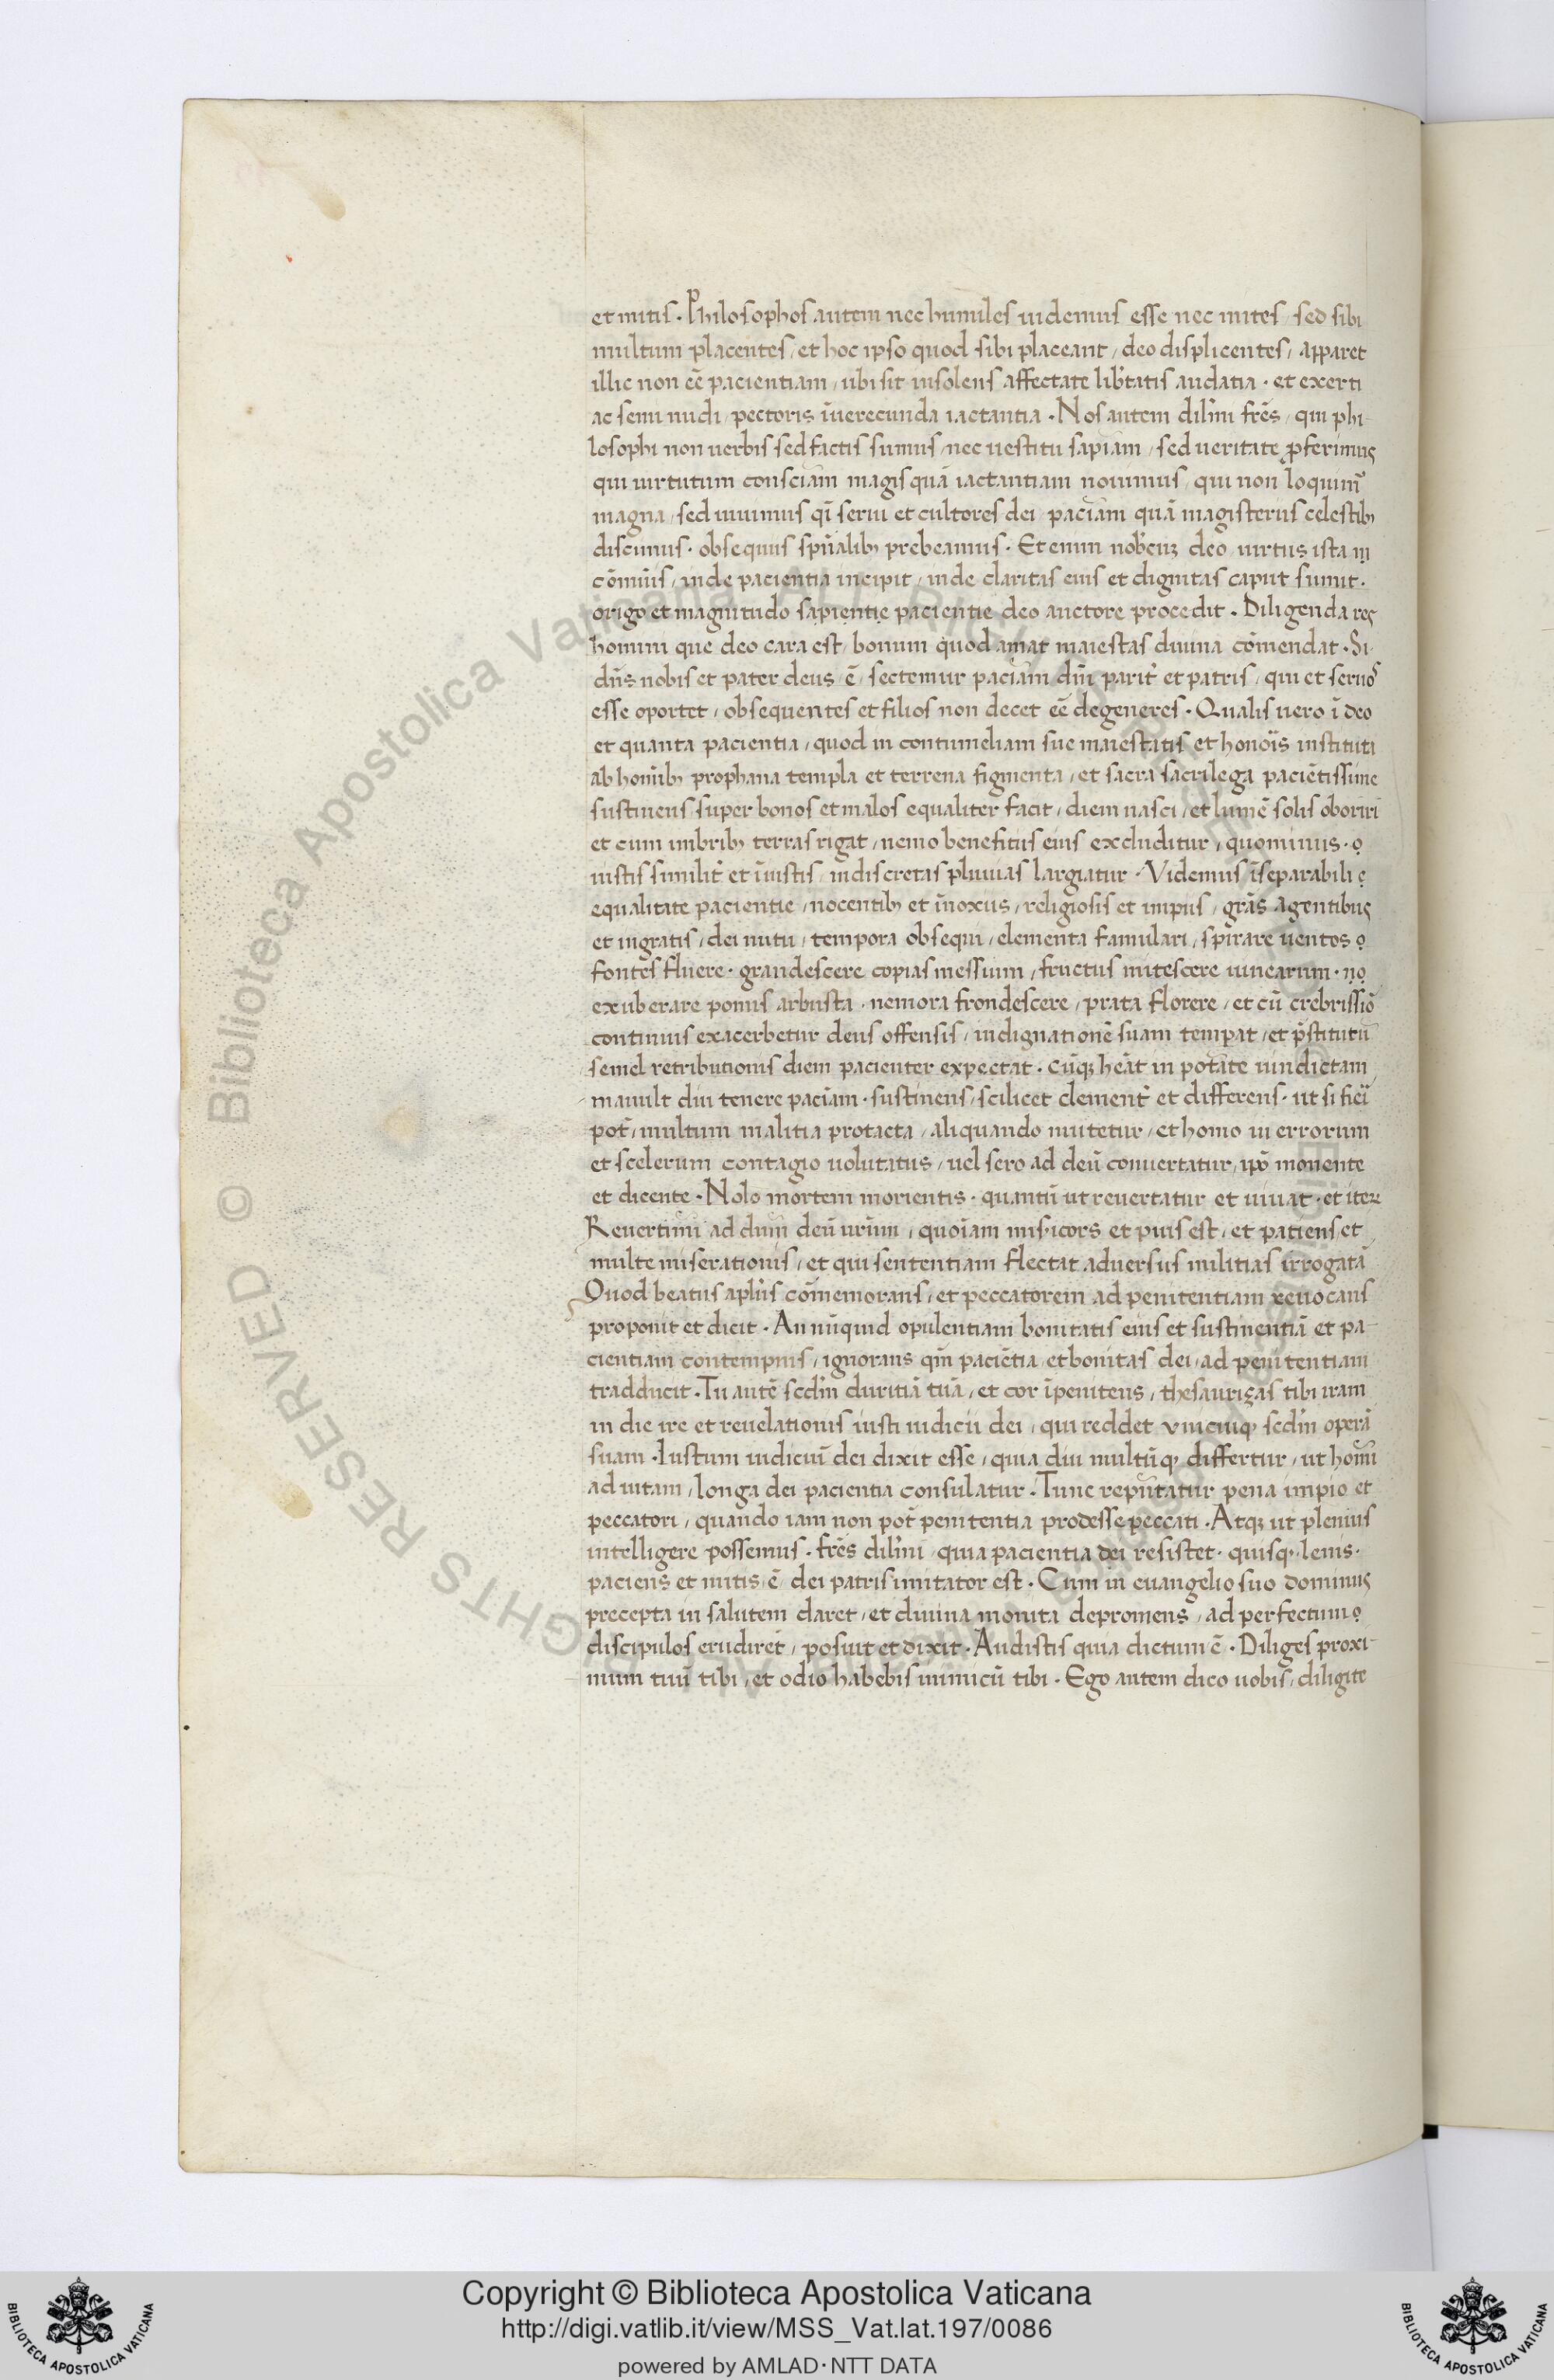 et mitis · Philosophos autem nec humiles uidemus esse nec mites / sed sibi
multum placentes / et hoc ipso quod sibi placeant / deo displicentes / apparet
illic non eē pacientiam / ubi sit insolens affectate lib̓tatis audatia · et exerti
ac semi nudi / pectoris īuerecunda iactantia · Nos autem dil̄mi fr̄es / qui phi-
losophi non uerbis sed factis sumus / nec uestitu sapiām / sed ueritate p̄ferimus
qui uirtutum consciām magis quā iactantiam nouimus / qui non loquim̄
magna / sed uiuimus qī serui et cultores dei / paciām quā magisteriis celestib;
discimus · obsequiis spūalib; prebeamus · Et enim nob̓ cuz deo uirtus ista in
cōmūis / inde pacientia incipit / inde claritas eius et dignitas caput sumit ·
origo et magnitudo sapientie pacientie deo auctore procedit · Diligenda res
homini que deo cara est / bonum quod amat maiestas diuina cōmendat · Si-
dn̄s nobis et pater deus ē / sectemur paciām dn̄i parit̓ et patris / qui et seruos
esse oportet / obsequentes et filios non decet eē degeneres · Qualis uero ī deo
et quanta pacientia / quod in contumeliam sue maiestatis et honōis instituti
ab hominib; prophana templa et terrena figmenta / et sacra sacrilega paciētissime
sustinens super bonos et malos equaliter facit / diem nasci / et lumē solis oboriri
et cum imbrib; terras rigat / nemo benefitiis eius excluditur / quominus · o
iustis similit̓ et īiustis indiscretas pluuias largiatur · Videmus īseparabili e
equalitate pacientie / nocentib; et īnoxiis / religiosis et impiis / grās agentibus
et ingratis / dei nutu / tempora obsequi / elementa famulari / spirare uentos o
fontes fluere · grandescere copias messium / fructus mitescere uinearum · no
exuberare pomis arbusta · nemora frondescere / prata florere / et cū crebrissiō
continuis exacerbetur deus offensis / indignationē suam temperat / et p̄stitutū
semel retributionis diem pacienter expectat · cūqz heāt in potāte uindictam
mauult diu tenere paciām · sustinens / scilicet clement̓ et differens · ut si fiēi
pot̓ / multum malitia protacta / aliquando mutetur / et homo in errorum
et scelerum contagio uolutatus / uel sero ad deū conuertatur ip̄o monente
et dicente · Nolo mortem morientis · quantū ut reuertatur et uiuat · et iterz
Reuertimi ad dnm̄ deū urūm / quoīam misicors et pius est / et patiens et
multe miserationis / et qui sententiam flectat aduersus militias irrogatā
Quod beatus apl̄us cōmemorans / et peccatorem ad penitentiam reuocans
proponit et dicit · An nūquid opulentiam bonitatis eius et sustinentiā et pa-
cientiam contempnis / ignorans qm̄ paciētia et bonitas dei / ad penitentiam
tradducit · Tu autē scdm̄ duritiā tuā / et cor īpenitens / thesaurizas tibi iram
in die ire et reuelationis iusti iudicii dei / qui reddet vnicuiq; scdm̄ operā
suam · Iustum iudiciū dei dixit esse / quia diu multūq; differtur / ut homī
ad uitam / longa dei pacientia consulatur · Tunc reputatur pena impio et
peccatori / quando iam non pot̓ penitentia prodesse peccati · Atqz ut plenius
intelligere possemus · fr̄es dil̄mi quia pacientia dei resistet · quisq; lenis ·
paciens et mitis ē dei patris imitator est · Cum in euangelio suo dominus
precepta in salutem daret / et diuina monita depromens / ad perfectum o
discipulos erudiret / posuit et dixit · Audistis quia dictum ē · Diliges proxi-
mum tuū tibi / et odio habebis inimicū tibi · Ego autem dico uobis / diligite
© Biblioteca Apostolica Vaticana
ALL RIGHTS RESERVED
Copyright © Biblioteca Apostolica Vaticana
http://digi.vatlib.it/view/MSS_Vat.lat.197/0086
powered by AMLAD·NTT DATA
BIBLIOTECA APOSTOLICA VATICANA
BIBLIOTECA APOSTOLICA VATICANA